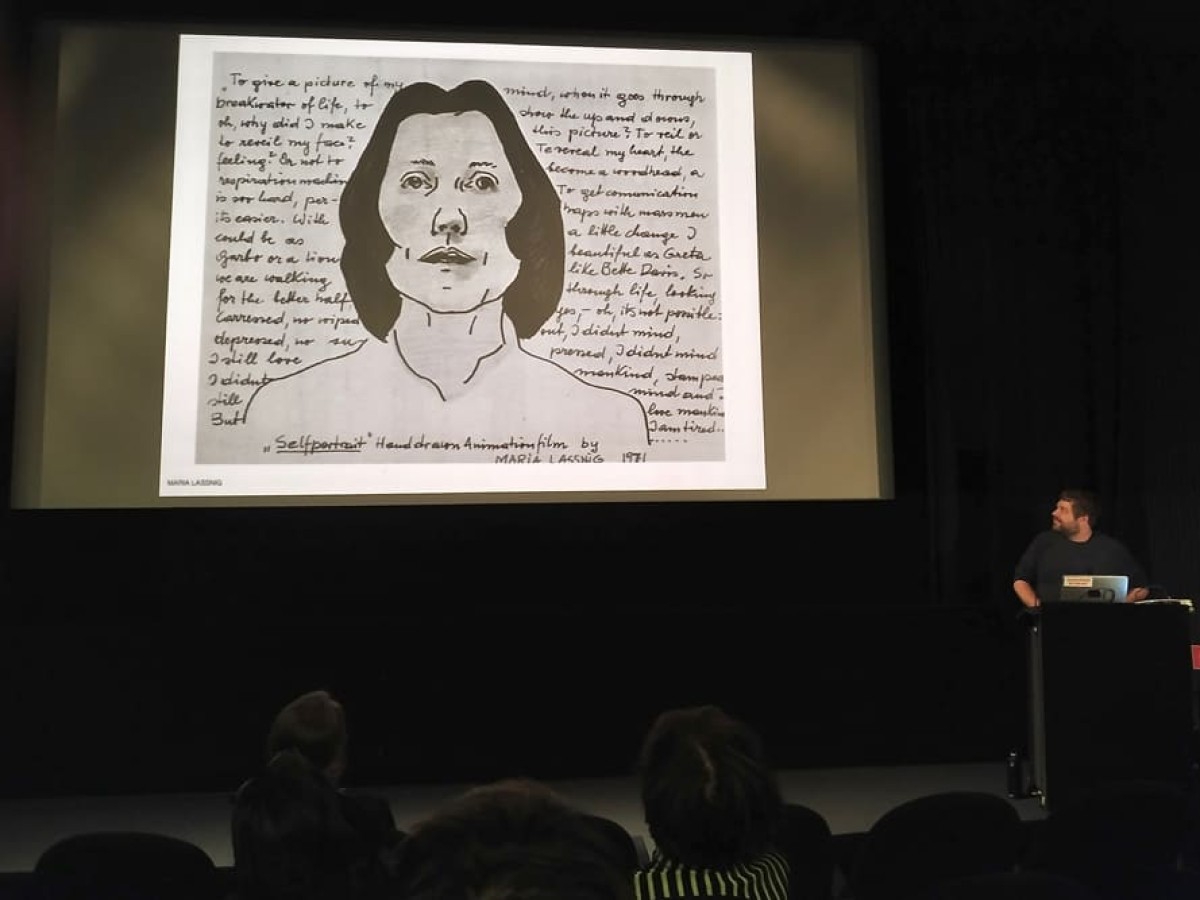 „To give a picture of my mind, when it goes through
breakwater of life, to show the ups and downs,
oh, why did I make this picture? To veil or
to reveil my face? To reveal my heart, the
feeling? Or not to become a woodhead, a
respiration machin To get comunication
is soo hard, per- haps with marsmen
its easier. With a little change I
could be as beautiful as Greta
Garbo or a lion like Bette Davis. So
we are walking through life, looking
for the better half, yes, – oh, its not possible:
Carressed, no wiped out, I didnt mind,
depressed, no su pressed, I didnt mind
I still love mankind, stamped
I didnt mind and
still love mankin
But I am tired..
......
„Selfportrait" Handdrawn Animationfilm by
MARIA LASSNIG 1971
MARIA LASSNIG